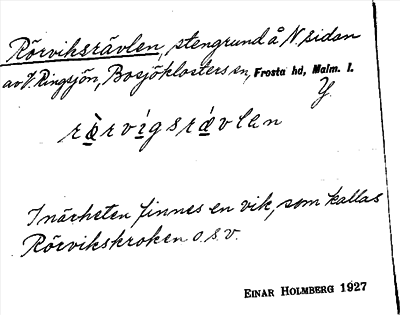 Rörviksrävlen, stengrund å N. sidan
av V. Ringsjön, Bosjöklosters sn, Frosta hd, Malm. l.
Y.
rö̀rvigsrǽvlan
I närheten finnes en vik, som kallas
Rörvikskroken o.s.v.
EINAR HOLMBERG 1927